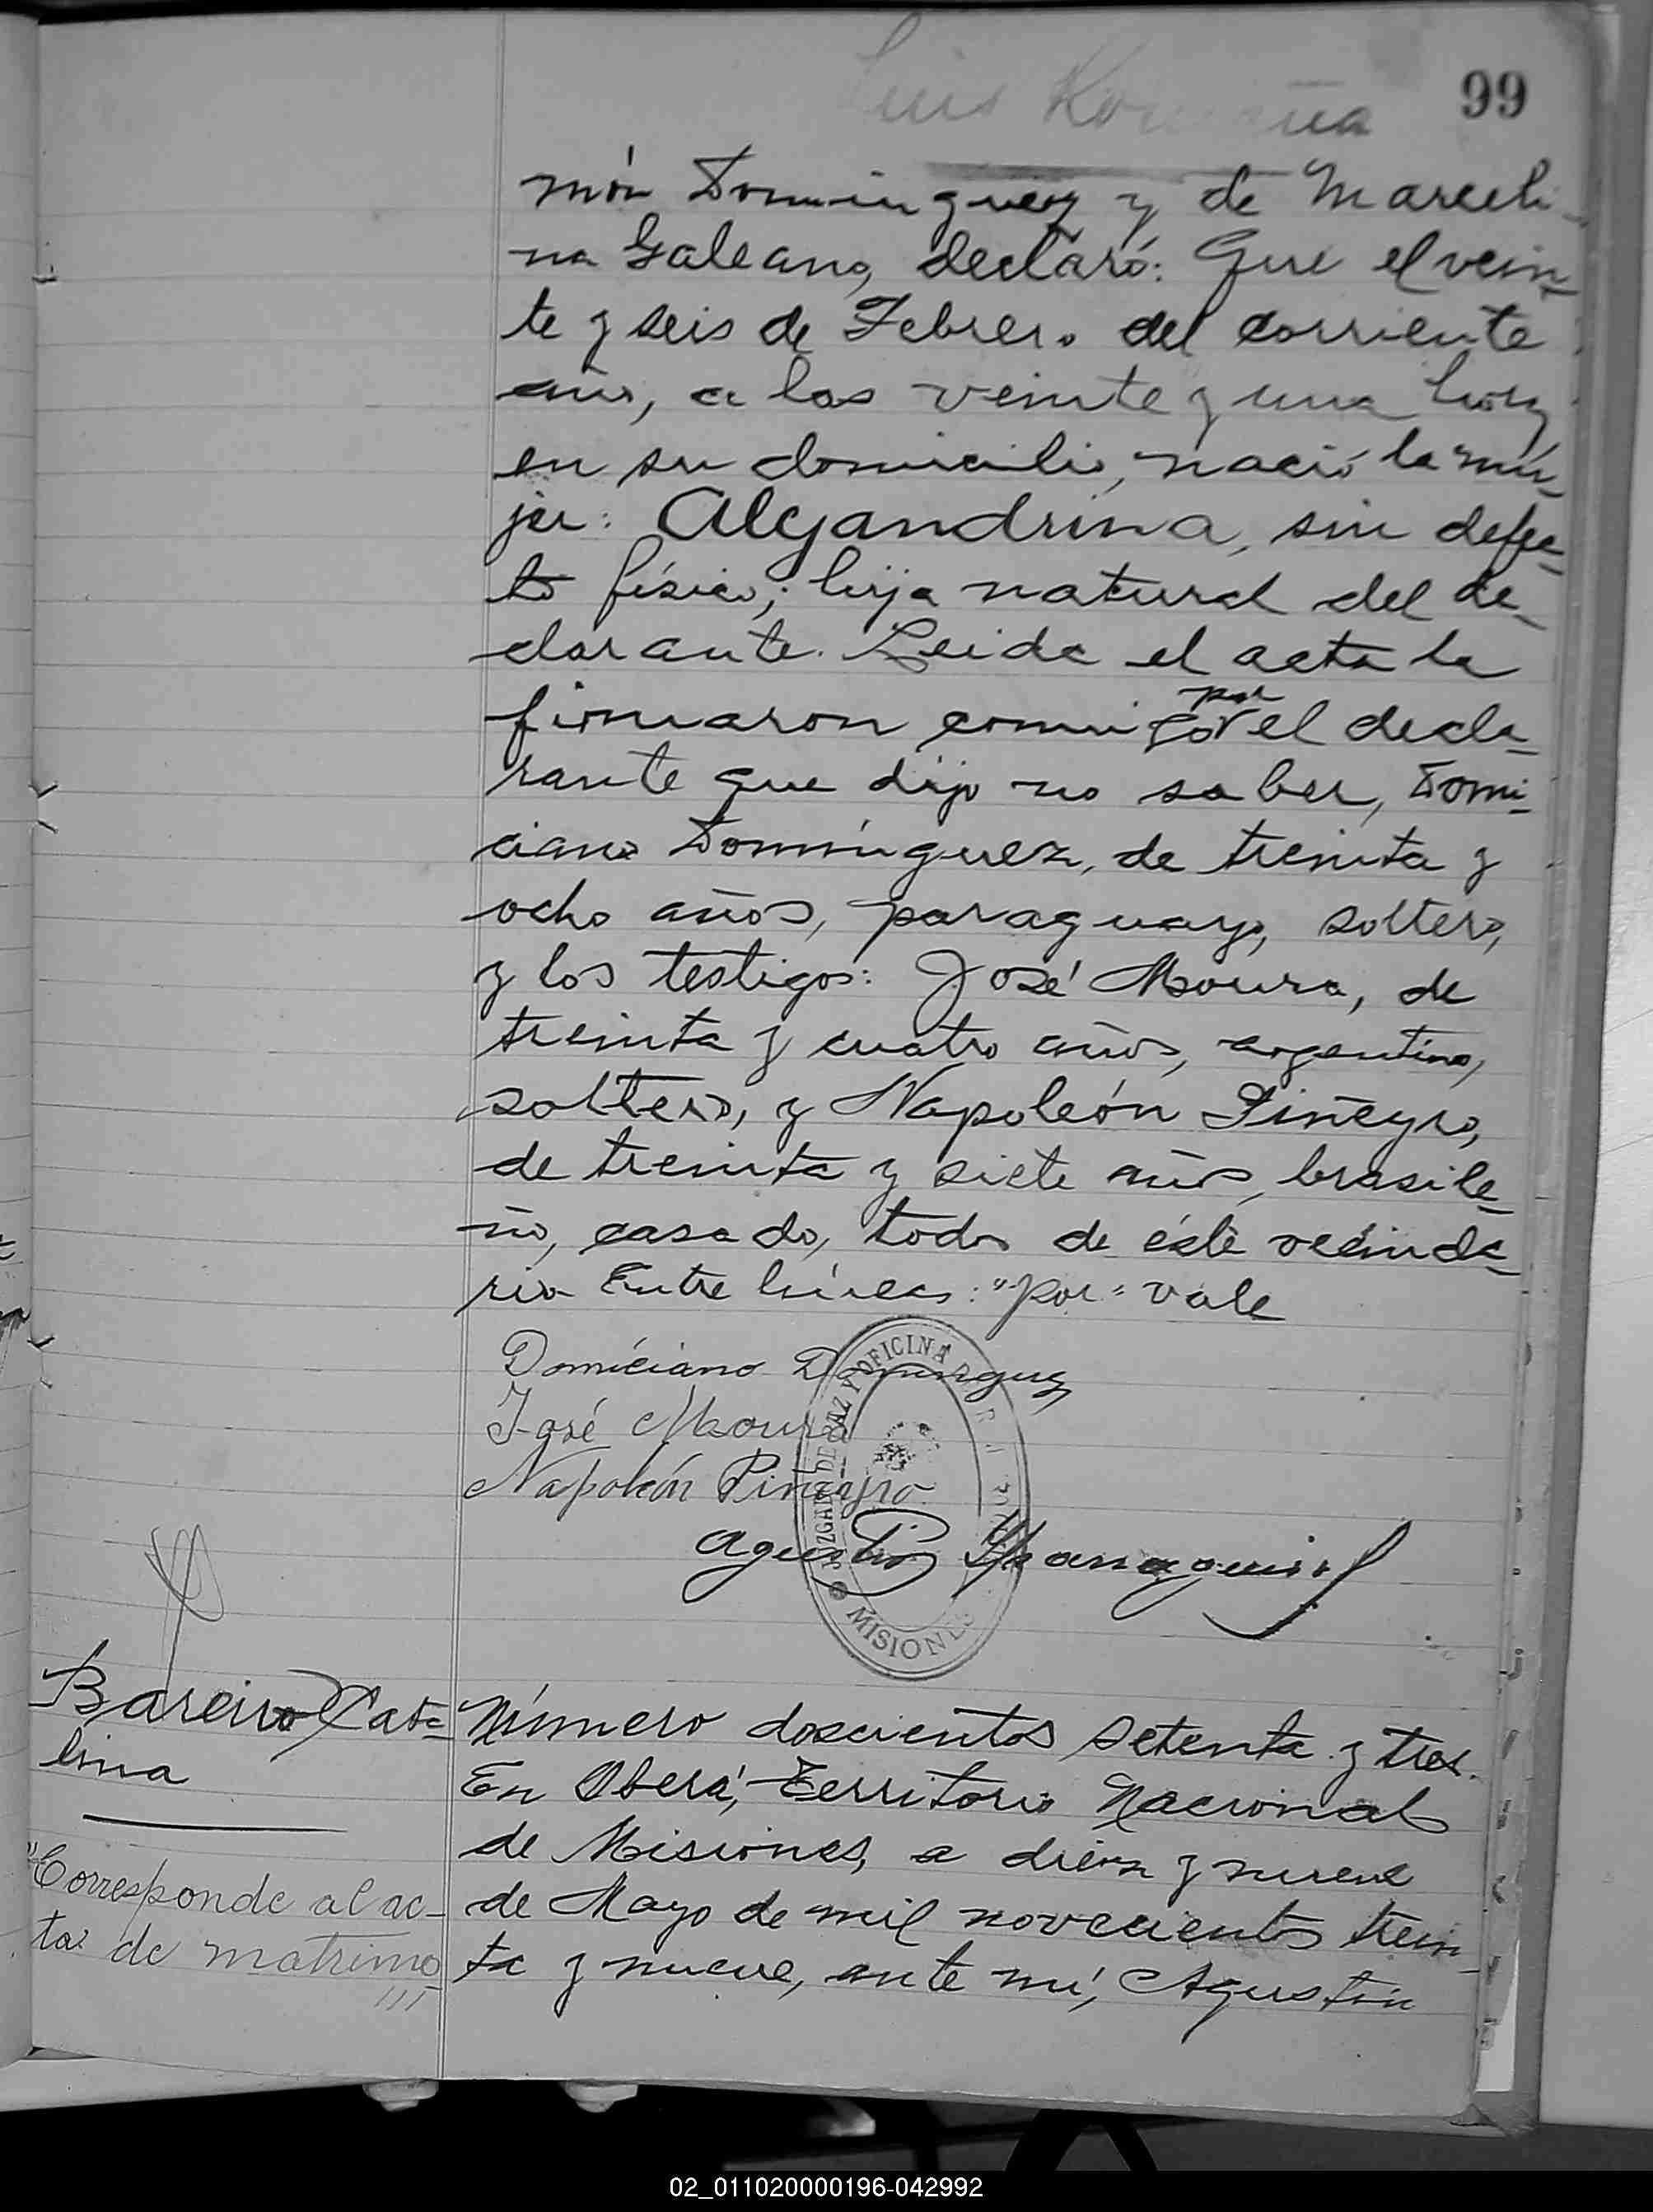 99
Luis
món Dominguez y de Marceli-
na Galeano, declaró: Que el vein-
te y seis de Febrero del corriente
año, a las veinte y una hora
en su domicilio, nació la mu-
jer: Alejandrina, sin defec-
to físico; hija natural del de-
clarante. Leida el acta la
por
firmaron conmigo el decla-
rante que dijo no saber, Domi-
ciano Domínguez, de treinta y
ocho años, paraguayo, soltero,
y los testigos: José Moura, de
treinta y cuatro años, argentino,
soltero, y Napoleón Piñeyro,
de treinta y siete años, brasile-
ño, casado, todos de éste vecinda-
rio Entre líneas: "por" vale
Domiciano Dominguez
José Moura
Napoleón Piñeyro
JUZGADO DE PAZ Y OFICINA
MISIONES
Agustin
Bareiro Cata-
lina
"Corresponde al ac-
ta de matrimo
Número doscientos setenta y tres.
En Oberá, Territorio Nacional
de Misiones, a diez y nueve
de Mayo de mil novecientos trein-
ta y nueve, ante mí, Agustín
02_011020000196-042992